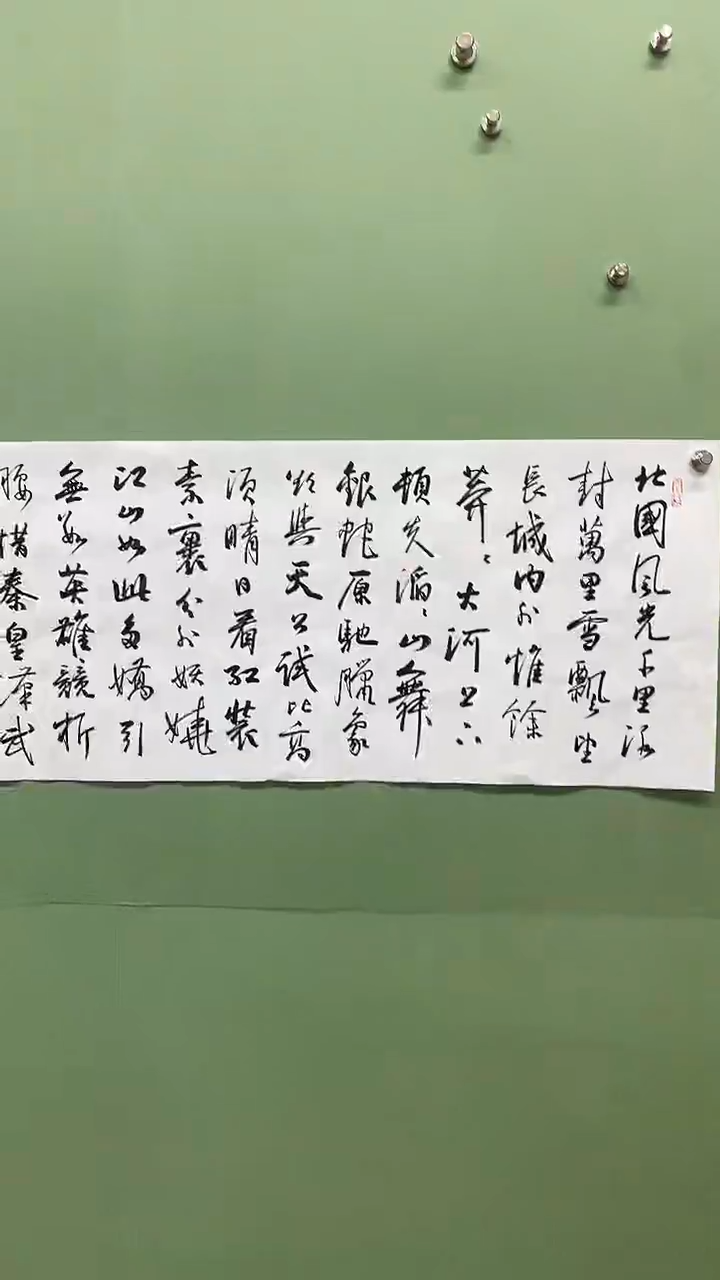 北國風光千里冰
封萬里雪飄望
長城內外惟餘
莽〻大河上下
頓失滔〻山舞
銀蛇原馳臘象
欲與天公試比高
須晴日看紅裝
素裹分外妖嬈
江山如此多嬌引
無數英雄競折
腰惜秦皇漢武